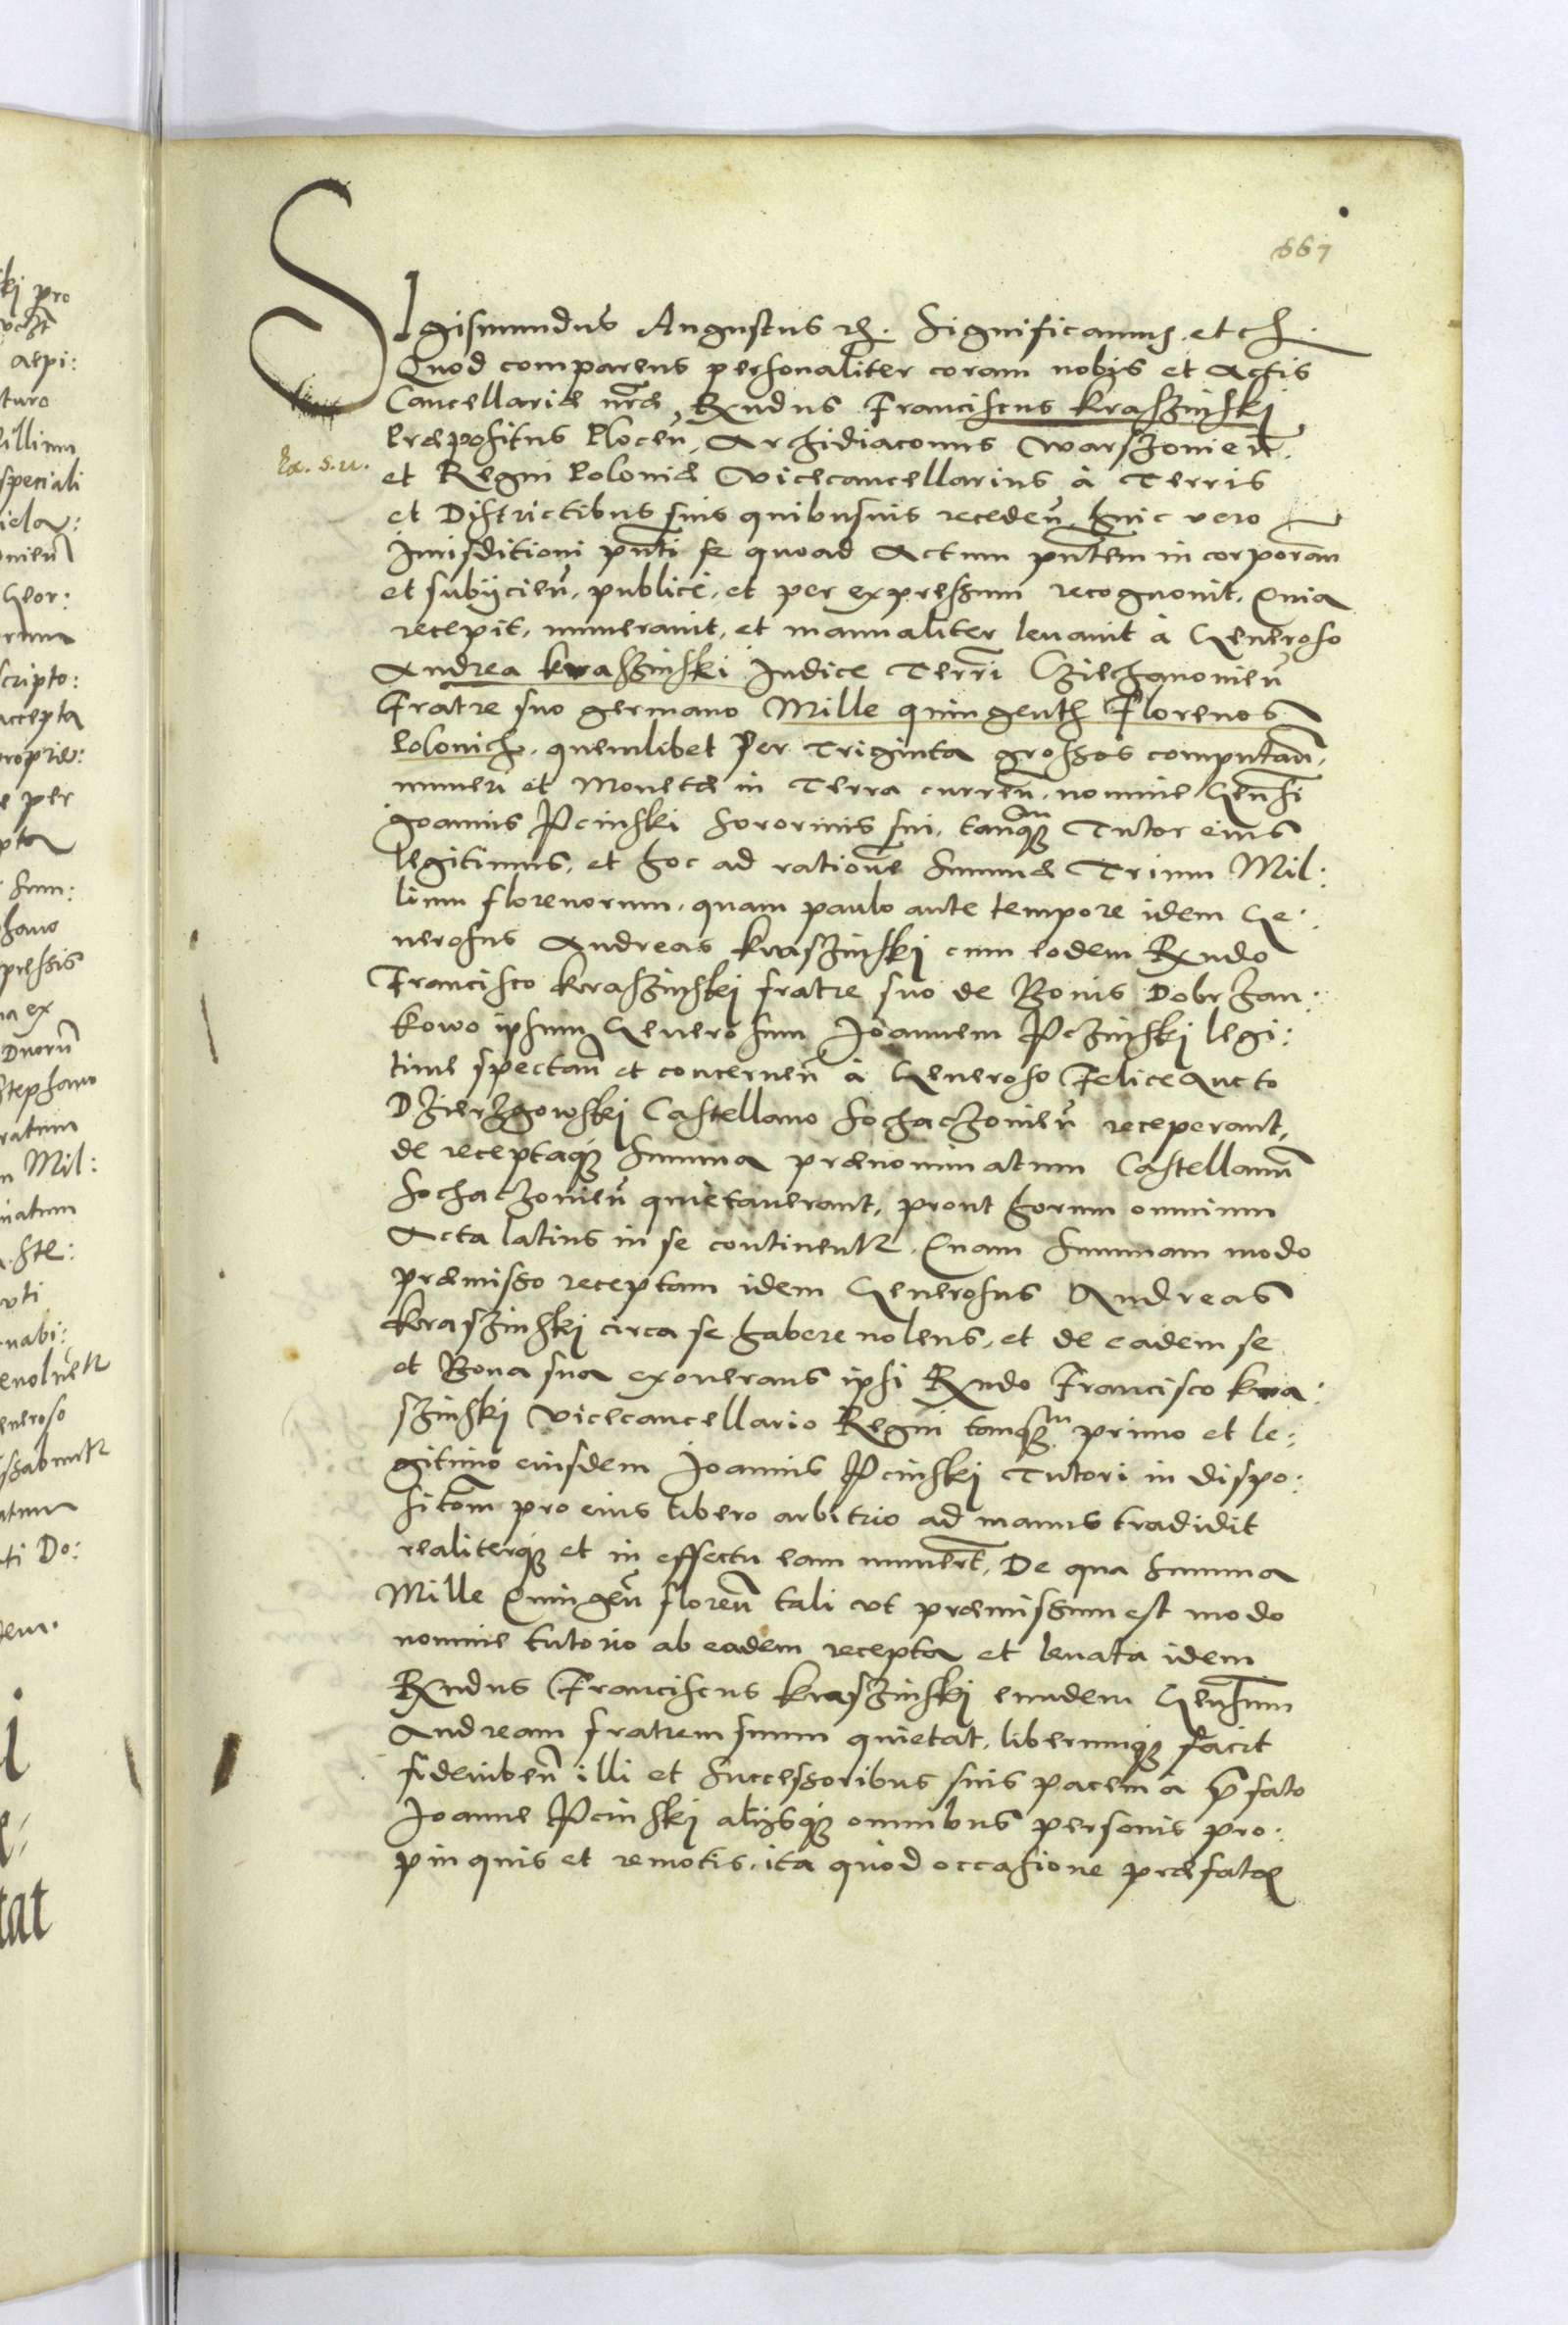 667
SIgismundus Augustus etc. Significamus etc.
Quod comparens personaliter coram nobis et Actis
Cancellariæ nræ Rndus Franciscus Kraszinskj
Præpositus Plocen̄, Archidiaconus Warszovien̄.
Ex. s. u.
et Regni Poloniæ Vicecancellarius à Terris
et Districtibus suis quibusuis receden̄, huic vero
Jurisditioni pn̄ti se quoad Actum pn̄tem incorporan̄
et subijcien̄, publicè, et per expressum recognouit. Quia
recepit, numerauit, et manualiter leuauit à Generoso
Andrea Krasszinski Judice Terrī Cziechanovien̄
Fratre suo germano Mille quingentos Florenos
Polonich. quemlibet Per Triginta grossos computan̄,
numeri et Monetæ in Terra curren̄, nomine Gen̄si
Joannis Pcinski Sororinis sui, tanquam Tutor eius
legitimus, et hoc ad ratione̅ Summæ Trium Mil:
lium florenorum, quam paulo ante tempore idem Ge:
nerosus Andreas Kraszinskj cum eodem Rndo
Francisco Krasszinskj fratre suo de Bonis Dobrzan:
kowo ipsum Generosum Joannem Pczinskj legi:
time spectan̄ et concernen̄ à Generoso Felice Aucto
Dzierzgowskj Castellano Sochaczovien̄ receperant,
de receptaque Summa prænominatum Castellanū
Sochaczovien̄ quietauerant, prout horum omnium
Acta latius in se continentur. Quam Summam modo
præmisso receptam idem Generosus Andreas
Krasszinskj circa se habere nolens, et de eadem se
et Bona sua exonerans ipsi Rndo Francisco Kra:
szinskj Vicecancellario Regni tanquam primo et le:
gitimo eiusdem Joannis Pcinskj Tutori in dispo:
sitōm pro eius libero arbitrio ad manus tradidit
realiterque et in effectu eam numerāt, De qua Summa
Mille Quingen̄ floren̄ tali vt præmissum est modo
nomine tutorio ab eadem recepta et leuata idem
Rndus Franciscus Kraszinskj eundem Gen̄sum
Andream fratrem suum quietat, liberumque facit
fideiuben̄ illi et Successoribus suis pacem à p̄fato
Joanne Pcinskj alijsque omnibus personis pro:
pinquis et remotis, ita quod occasione præfatæ